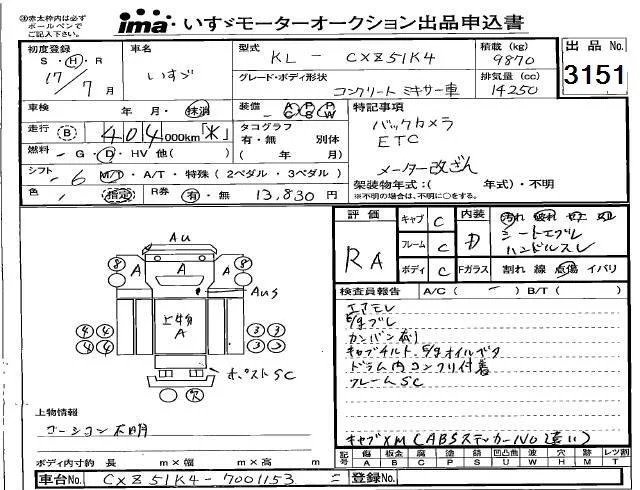 ※赤太枠内は必ず
ボールペンで
ご記入下さい。
ima いすゞモーターオークション出品申込書
初度登録
S・H・R
17/7月
車名
いすゞ
型式
KL - CXZ51K4
グレード・ボディ形状
コンクリート ミキサー車
積載 (kg)
9870
排気量 (cc)
14250
出品 No.
3151
車検 年 月・抹消
装備 A/C P/S P/W
走行 B 404,000km「*」
タコグラフ
有・無 別体
( 年 月)
燃料 G・D・HV 他( )
シフト 6 M/T・A/T・特殊(2ペダル・3ペダル)
色 指定 R券 有・無 13,830円
特記事項
バックカメラ
ETC
メーター改ざん
架装物年式:( 年式)・不明
※不明の場合は、不明に○をする。
評価
RA
キャブ C
フレーム C
ボディ C
内装 D
汚れ 破れ
シート
ハンドルスレ
Fガラス 割れ 線 点傷 イバリ
検査員報告 A/C ( - ) B/T ( )
エアモレ
カンバン有り
キャブチルト
ドラム内コンクリ付着
フレームSC
キャブXM(ABSステッカーNo違い)
AU
8 A A A 8
AUS
上物
A
4 4 3 3
4 4 3 3
SC
上物情報
不明
ボディ内寸約 長 m×幅 m×高 m
記号 傷 板金 腐 塗 錆 凹凸曲 波 穴 外 レツ割
A B C P S U W H M T
車台No. CXZ51K4-7001153
登録No.